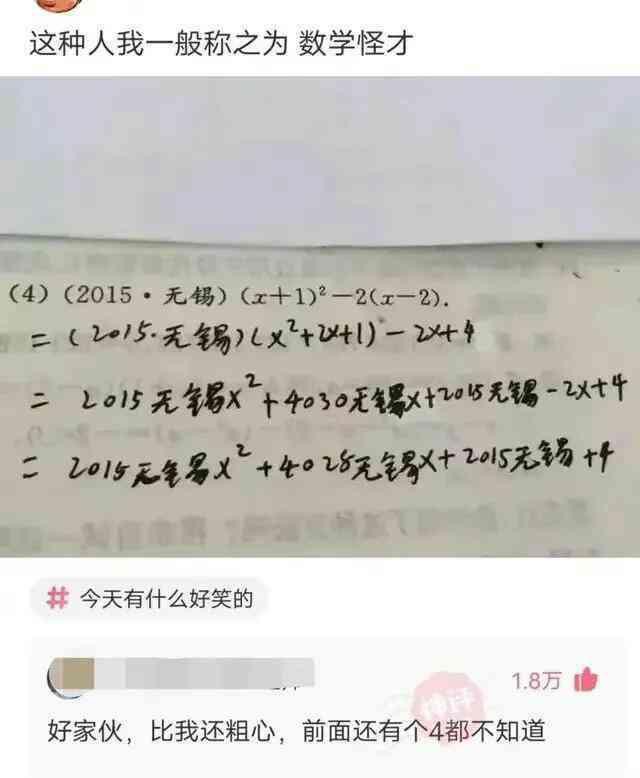 这种人我一般称之为 数学怪才
(4)(2015·无锡)(x+1)²-2(x-2).
=(2015·无锡)(x²+2x+1)-2x+4
= 2015无锡x²+4030无锡x+2015无锡-2x+4
= 2015无锡x²+4028无锡x+2015无锡+4
# 今天有什么好笑的
1.8万
好家伙，比我还粗心，前面还有个4都不知道